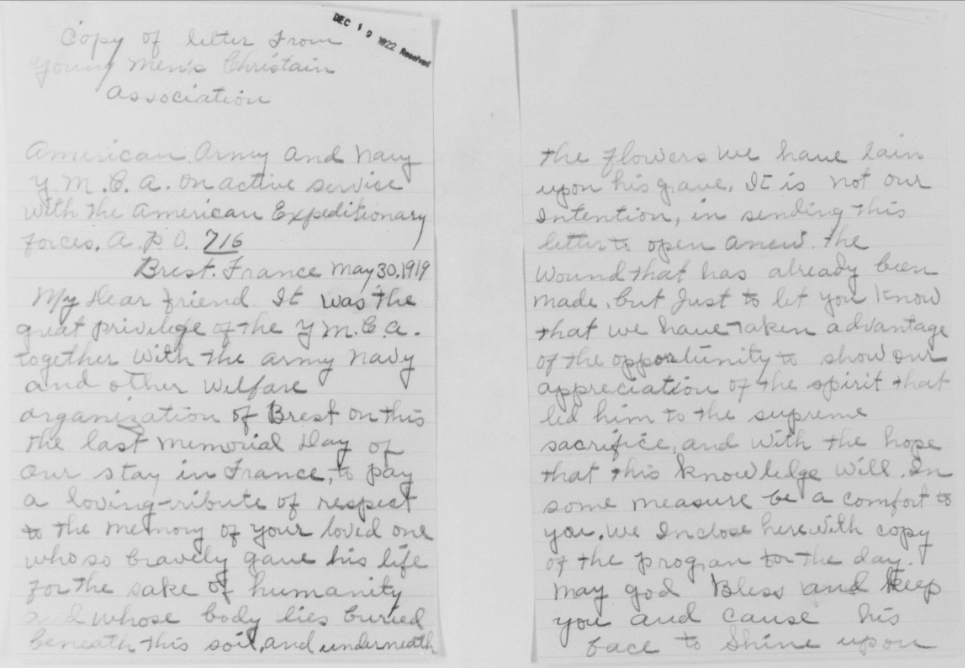 Copy of letter from
Young Men's Christain
Association
DEC 19 1922 Received
American Army and Navy
Y.M.C.A. on active service
with the American Expeditionary
Forces, A.P.O. 716
Brest. France May 30, 1919
My Dear friend. It was the
great privilege of the Y M.C.A.
together with the army navy
and other welfare
organization of Brest on this
the last Memorial Day of
our stay in France, to pay
a loving-tribute of respect
to the memory of your loved one
who so bravely gave his life
for the sake of humanity
and whose body lies buried
beneath this soil, and underneath
the flowers we have lain
upon his grave. It is not our
Intention, in sending this
letter to open anew. the
wound that has already been
made, but Just to let you know
that we have taken advantage
of the opportunity to show our
appreciation of the spirit that
led him to the supreme
sacrifice, and with the hope
that this knowledge will. In
some measure be a comfort to
you. We Inclose herewith copy
of the program for the day.
May god Bless and keep
you and cause his
face to shine upon